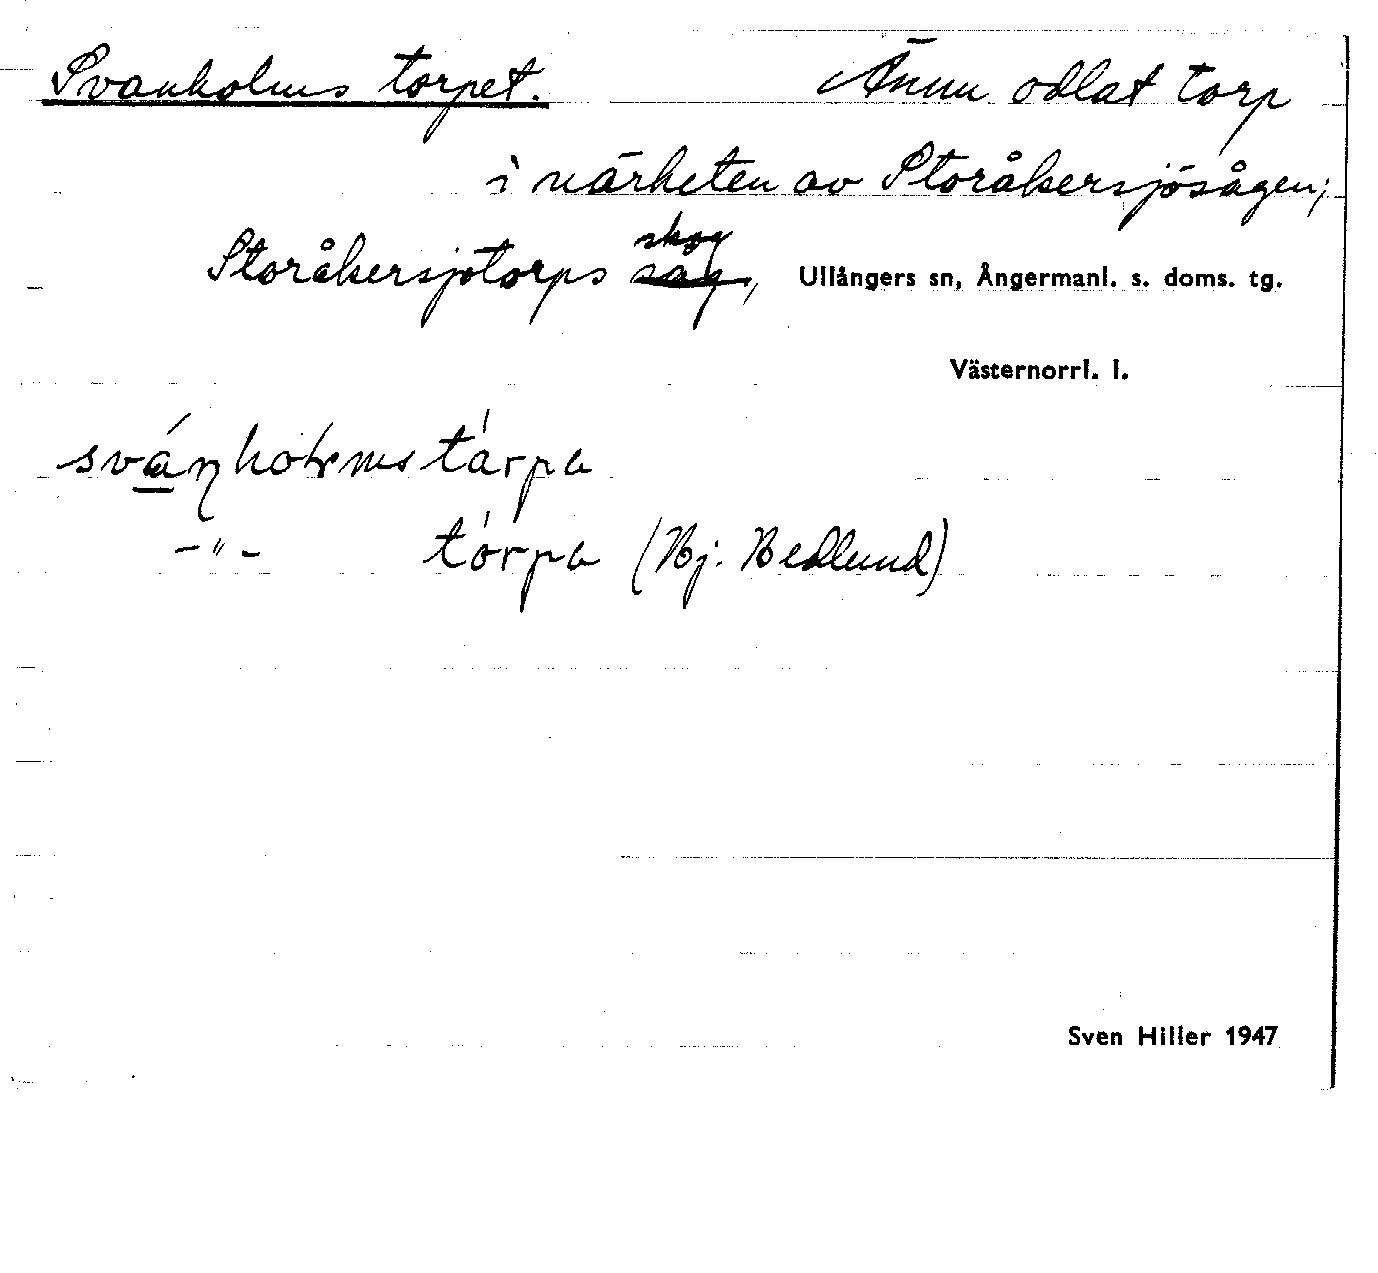 Svanholms torpet. Ännu odlat torp
i närheten av Storåkersjösågen;
skog
Storåkersjötorps såg, Ullångers sn, Ångermanl. s. doms. tg.
Västernorrl. l.
tárpa
-"- tórpa
Sven Hiller 1947